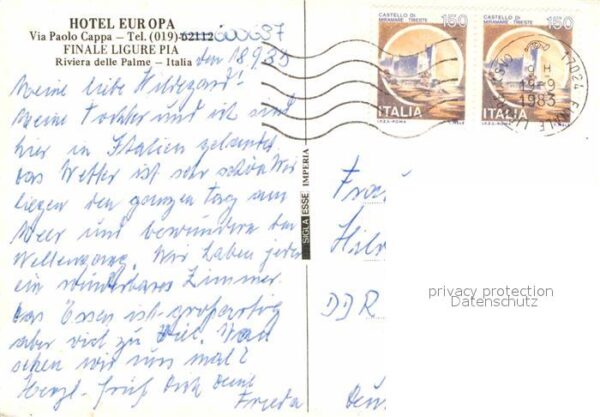 HOTEL EUROPA
Via Paolo Cappa — Tel. (019) 62112 600637
FINALE LIGURE PIA
Riviera delle Palme — Italia
den 18.9.83
Meine liebe Hildegard!
Meine Tochter und ich sind
hier in Italien gelandet
das Wetter ist sehr schön Wir
liegen den ganzen Tag am
Meer und bewundern den
Wellengang. Wir haben jeder
ein wunderbares Zimmer.
das Essen ist großartig
aber viel zu viel. Wann
sehen wir uns mal?
Herzl. Grüß Dich Deine
Frieda
SIGLA ESSE IMPERIA
CASTELLO DI
MIRAMARE TRIESTE
150
ITALIA
I.P.Z.S.-ROMA
CASTELLO DI
MIRAMARE TRIESTE
150
ITALIA
I.P.Z.S.-ROMA
17024 FINALE LI
1983
Frau
Hil
DDR
privacy protection
Datenschutz